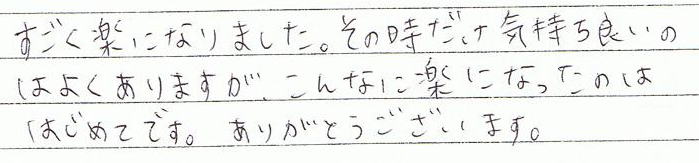 すごく楽になりました。その時だけ気持ち良いの
はよくありますが、こんなに楽になったのは
はじめてです。ありがとうございます。